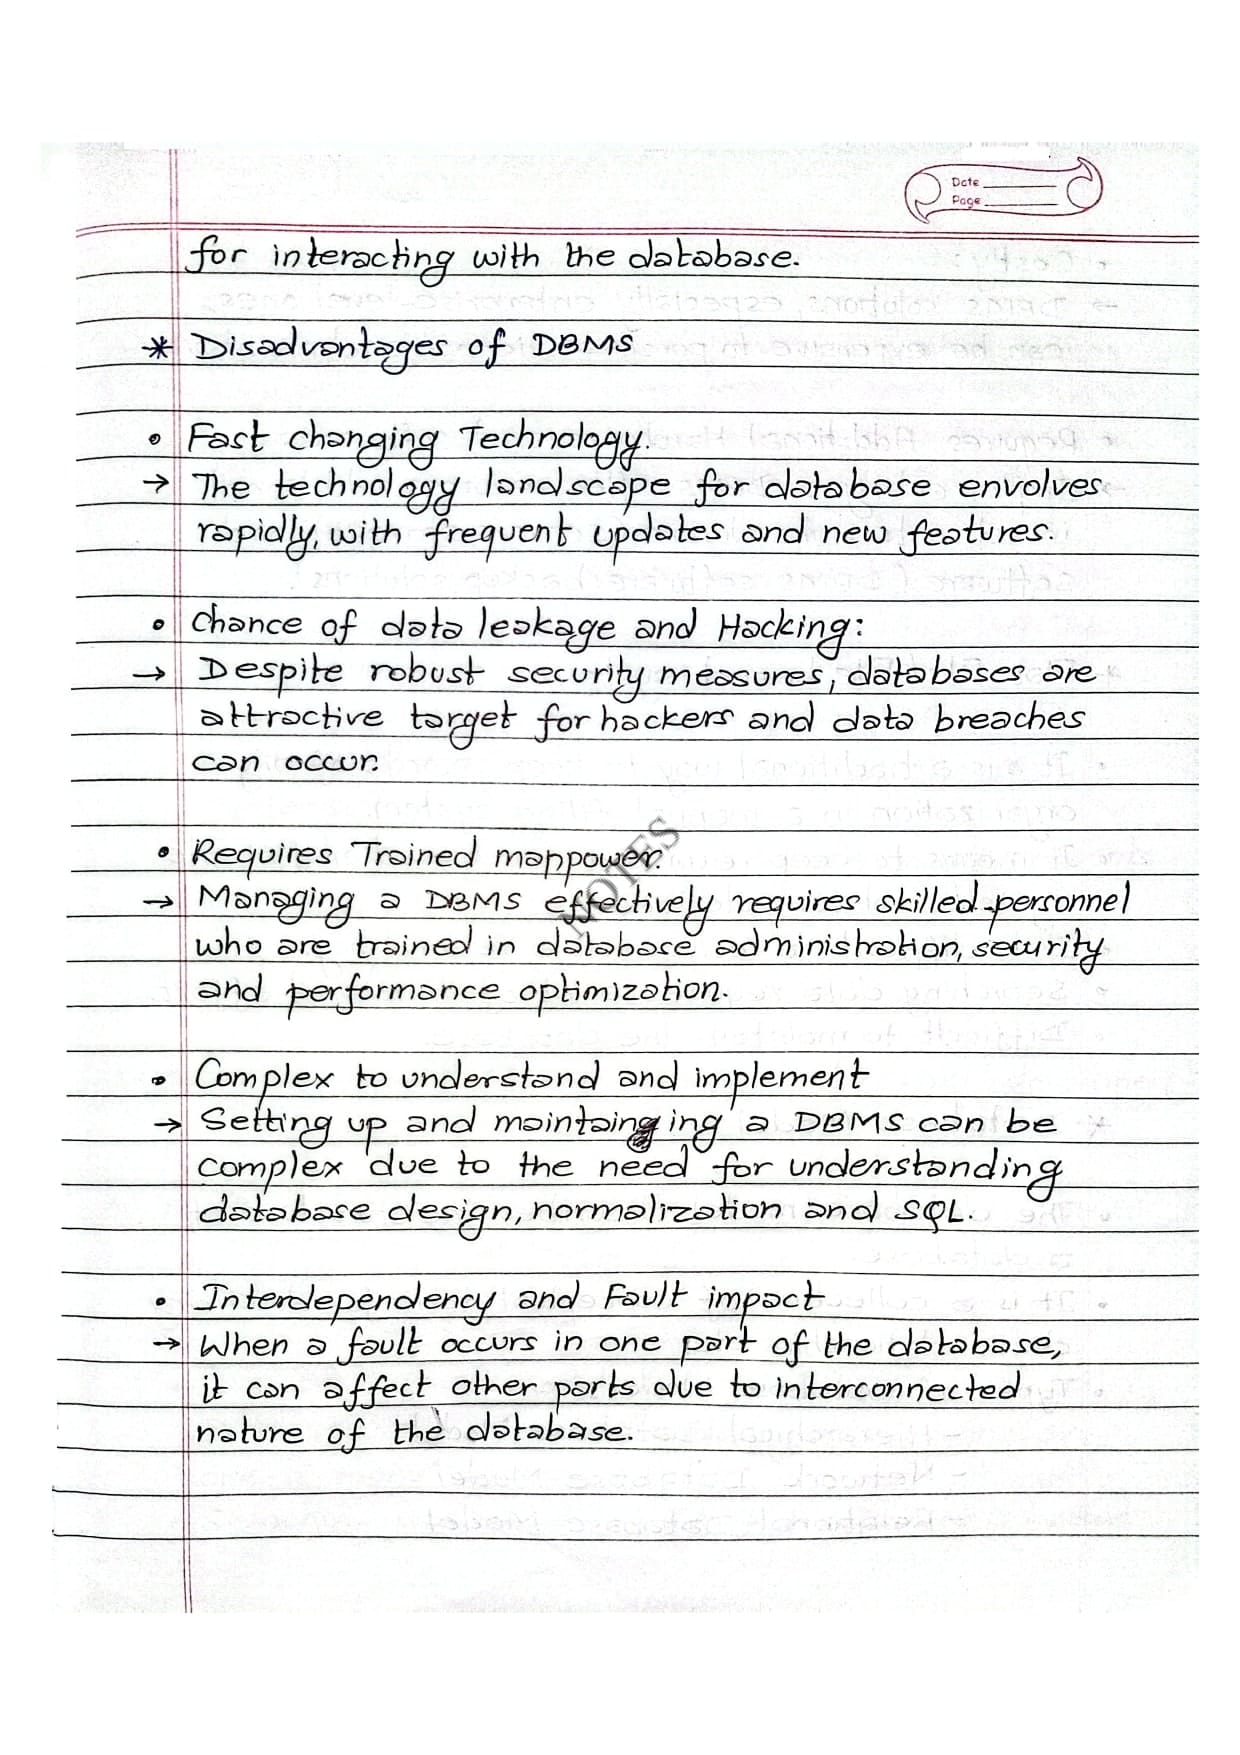 Date
Page
for interacting with the database.
* Disadvantages of DBMS
• Fast changing Technology.
→ The technology landscape for database envolves
rapidly, with frequent updates and new features.
• Chance of data leakage and Hacking:
→ Despite robust security measures, databases are
attractive target for hackers and data breaches
can occur.
• Requires Trained manpower.
NOTES
→ Managing a DBMS effectively requires skilled personnel
who are trained in database administration, security
and performance optimization.
• Complex to understand and implement
→ Setting up and maintaining a DBMS can be
complex due to the need for understanding
database design, normalization and SQL.
• Interdependency and Fault impact
→ When a fault occurs in one part of the database,
it can affect other parts due to interconnected
nature of the database.